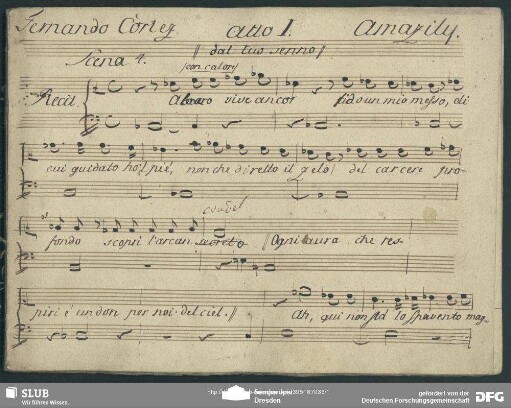 Fernando Cortez atto I. Amazily.
Scena 4. // dal tuo senno //
con calore
Recit. Alvaro vive ancor fido un mio messo, di
cui guidato ho il piè, non che diretto il zelo del carcere pro-
fondo scoprì l'arcan segreto // Ogni aura che res-
piri è un don per noi del ciel. // Ah, qui non sta lo spavento mag-
SLUB
Wir führen Wissen.
Dresden
gefördert von der
Deutschen Forschungsgemeinschaft
DFG